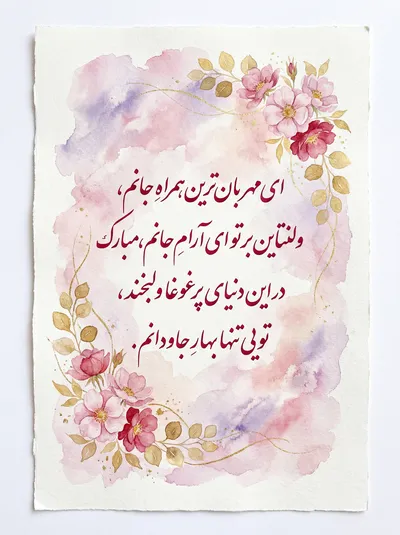 ای مهربان‌ترین همراهِ جانم،
ولنتاین بر تو ای آرامِ جانم، مبارک
در این دنیای پرغوغا و لبخند،
تویی تنها بهارِ جاودانم.